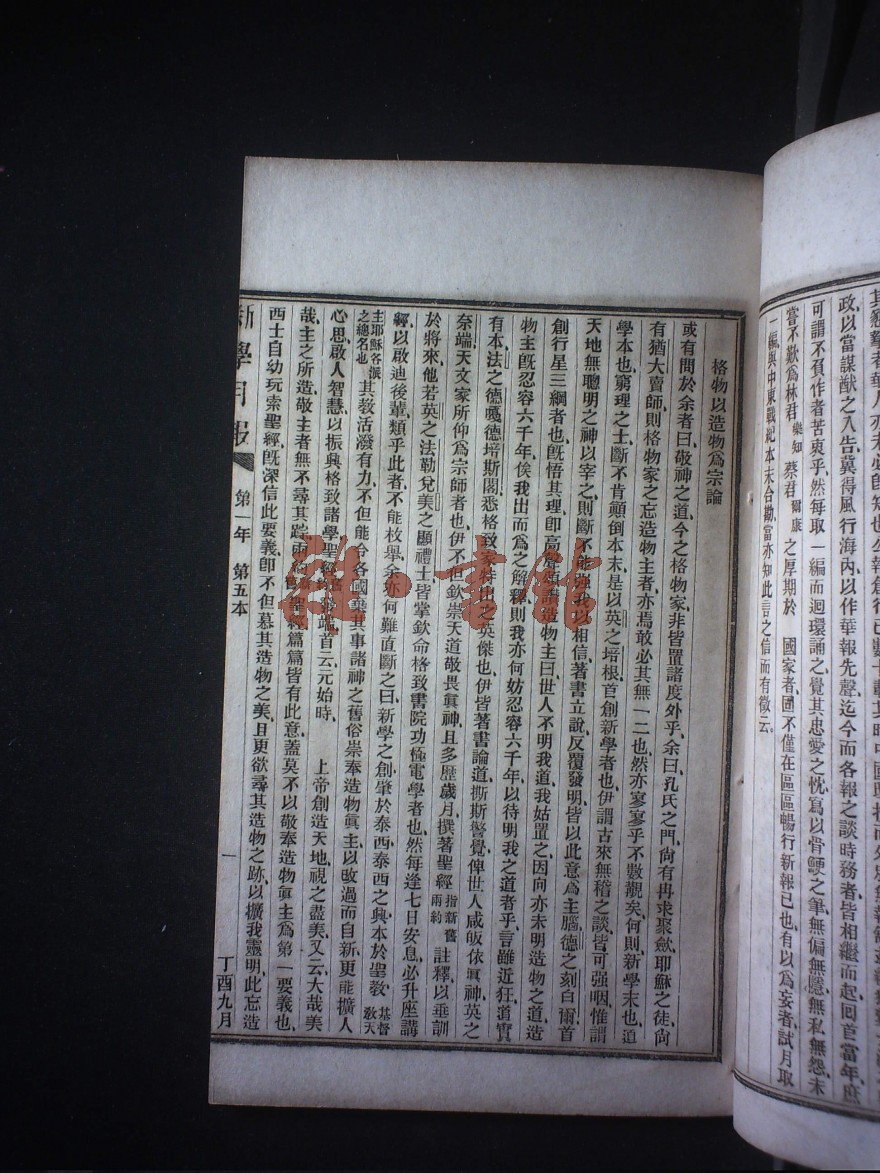 政以當謀猷之入告冀得風行海內以作華報先聲迄今而各報之談時務者皆相繼而起回首當年庶
可謂不負作者苦衷乎然每取一編而迴環誦之覺其忠愛之忱寫以骨鯁之筆無偏無隱無私無怨未
嘗不歎爲林君樂知蔡君爾康之厚期於 國家者固不僅在區區暢行新報已也有以爲妄者試月取
一編與中東戰紀本末合勘當亦知此言之信而有徵云
格物以造物爲宗論
或有問於余者曰敬神之道今之格物家非皆置諸度外乎余曰孔氏之門尙有冉求聚歛耶穌之徒尙
有猶大賣師則格物家之忘造物主者亦焉敢必其無一二也然亦寥寥乎不數覯矣何則新學末也道
學本也窮理之士斷不肯顚倒本末是以英之培根首創新學者也伊謂古來無稽之談皆可强咽惟謂
天地無聰明之神以宰之則斷不能强我以相信著書立說反覆發明皆以此意爲主腦德之刻白爾首
創行星三綱者也旣悟其理卽高聲頌讚造物主曰世人不明我道我姑置之因向亦未明造物之道造
物主旣忍容六千年俟我出而爲之解釋則我亦何妨忍容六千年以待明我之道者乎言雖近狂道實
有本法之德嘎德培斯閣悉格致家特出之英傑也伊皆著書論道撕斯警覺俾世人咸皈依眞神英之
奈端天文家所仰爲宗師者也伊不但欽崇天道敬畏眞神且多歷歲月撰著聖經指新舊兩約註釋以垂訓
於將來他若英之法勒兌美之顯禮士皆掌欽命格致書院功極電學者也然每逢七日安息必升座講
經以啟迪後輩類乎此者不能枚舉余亦何難直斷之曰新學之創肇於泰西泰西之興本於聖敎基督敎天
主耶穌各派之總名也其敎活潑有力不但能令各國棄其事諸神之舊俗崇奉造物眞主以改過而自新更能擴人
心思啟人智慧以振興格致諸學聖經發端首云元始時 上帝創造天地視之盡美又云大哉美
哉主之所造敬主者無不尋其踪兩約聖經篇篇皆有此意蓋莫不以敬奉造物眞主爲第一要義也
西士自幼玩索聖經旣深信此要義卽不但慕其造物之美且更欲尋其造物之跡以擴我靈明此忘造
新學月報 第一年 第五本 一 丁酉九月
雜書館